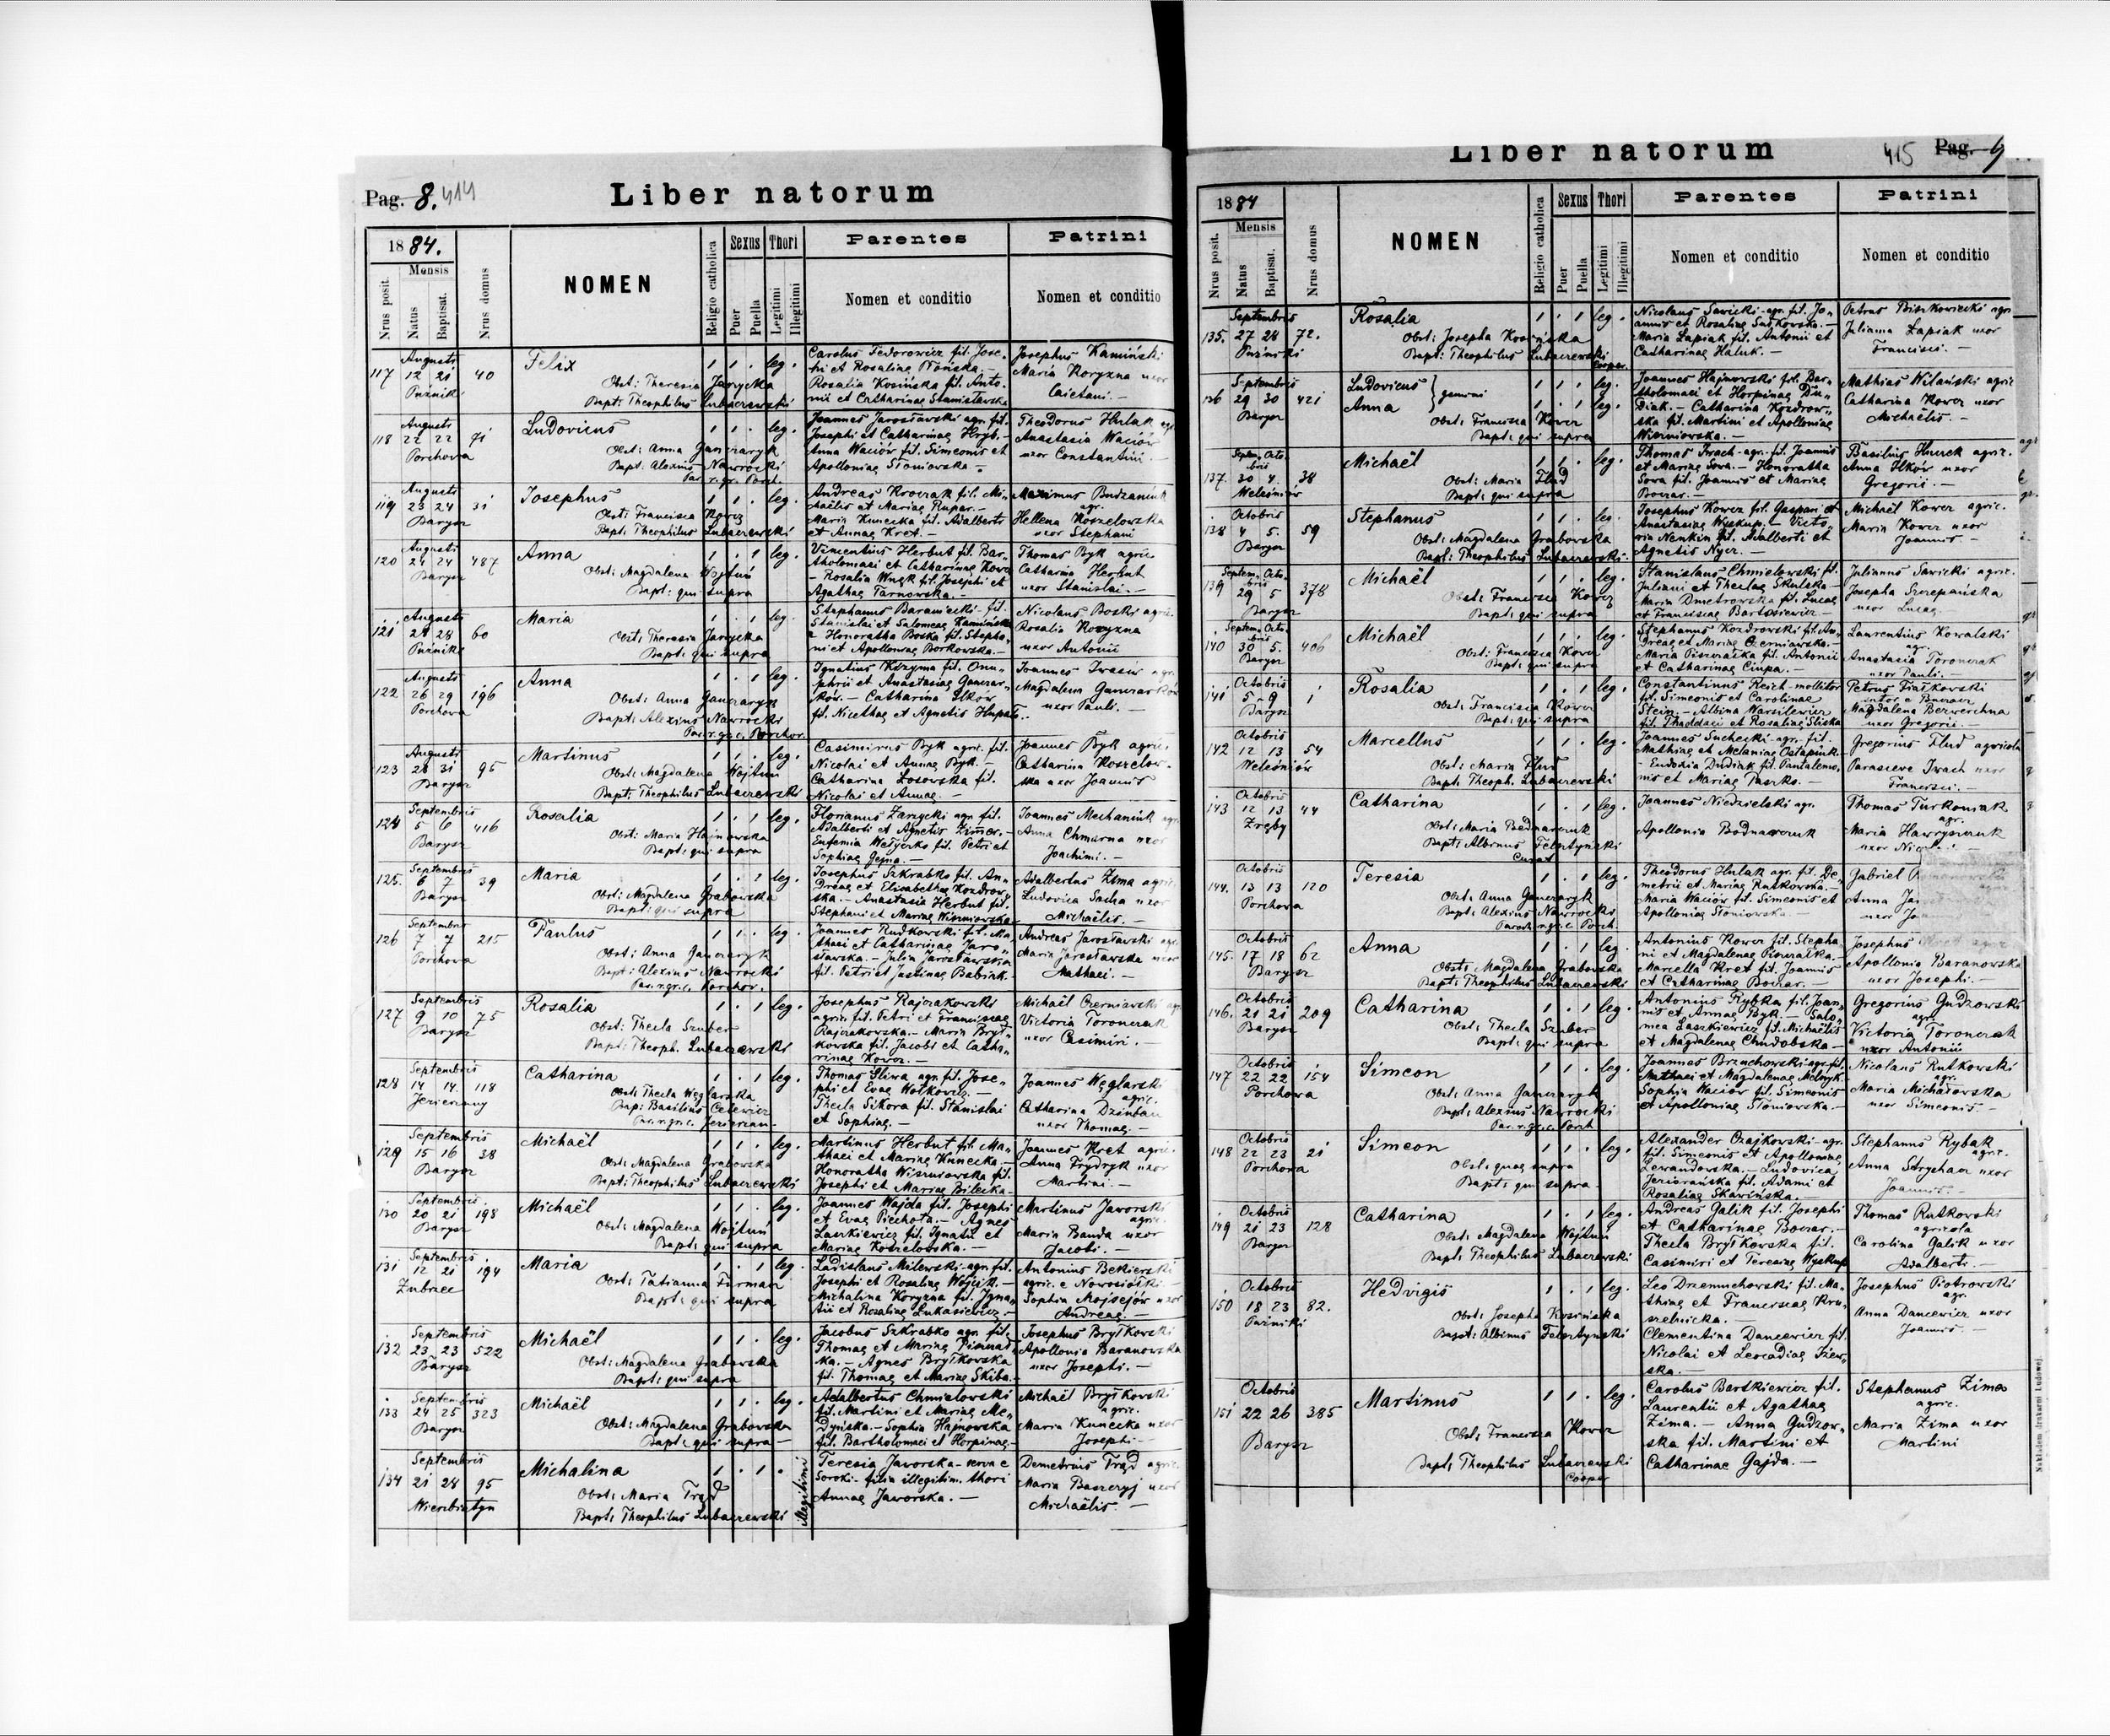 Pag. 8. 414
Liber natorum
1884.
Mensis
Nrus posit.
Natus
Baptisat.
Nrus domus
NOMEN
Religio catholica
Sexus
Puer
Puella
Thori
Legitimi
Illegitimi
Parentes
Nomen et conditio
Patrini
Nomen et conditio
117 Augusti 12 21 Pużniki 40
Felix
Obst: Theresia Jarycka
Bapt: Theophilus Lubaczewski
1 1 . leg.
Carolus Fedorowicz fil. Jose-
phi et Rosaliae
Rosalia Kosińska fil. Anto-
nii et Catharinae Stanisławska
Josephus Kamiński
Maria Koryzna uxor
Caietani. —
118 Augusti 22 22 Porchova 71
Ludovicus
Obst: Anna Ganczaryk
Bapt: Alexius Nawrocki
Par. r. gr. Porch.
1 1 . leg.
Joannes Jarosławski agr. fil.
Josephi et Catharinae Hryb. —
Anna Waciór fil. Simeonis et
Apolloniae Słoniowska —
Theodorus Hulak agr.
Anastasia Waciór
uxor Constantini. —
119 Augusti 23 24 Barysz 31
Josephus
Obst: Francisca Kowcz
Bapt: Theophilus Lubaczewski
1 1 . leg.
Andreas Krowczak fil. Mi-
chaëlis et Mariae Rupar. —
Maria Kunecka fil. Adalberti
et Annae Kret. —
Maximus Budzaniuk
agr.
Hellena Koszelowska
uxor Stephani
120 Augusti 24 24 Barysz 487
Anna
Obst: Magdalena Wojtuń
Bapt: qui supra
1 . 1 leg.
Vincentius Herbut fil. Bar-
tholomaei et Catharinae Kowcz
— Rosalia Wnęk fil. Josephi et
Agathae Tarnowska. —
Thomas Byk agric
Catharina Herbut
uxor Stanislai. —
121 Augusti 27 28 Pużniki 60
Maria
Obst: Theresia Jarycka
Bapt: qui supra
1 . 1 leg.
Stephanus Baraniecki fil.
Stanislai et Salomeae Kamińska
— Honoratha Boska fil. Stepha-
ni et Apolloniae Borkowska. —
Nicolaus Boski agric.
Rosalia Koryzna
uxor Antonii
122 Augusti 26 29 Porchova 196
Anna
Obst: Anna Ganczaryk
Bapt: Alexius Nawrocki
Par. r. gr. c. Porchov.
1 . 1 leg.
Ignatius Kdzyma fil. Onu-
phrii et Anastasiae Ganczar-
ków. — Catharina Ilków
fil. Nicethae et Agnetis Hupało.
Joannes Iwasiw agr.
Magdalena Ganczarków
uxor Pauli. —
123 Augusti 28 31 Barysz 95
Martinus
Obst: Magdalena Wojtuń
Bapt: Theophilus Lubaczewski
1 1 . leg.
Casimirus Byk agric. fil.
Nicolai et Annae Byk. —
Catharina Łosowska fil.
Nicolai et Annae. —
Joannes Byk agric.
Catharina Koszelow-
ska uxor Joannis
124 Septembris 5 6 Barysz 416
Rosalia
Obst: Maria Hajnowska
Bapt: qui supra
1 . 1 leg.
Florianus Zarzycki agr. fil.
Adalberti et Agnetis Zimer. —
Eufemia Wełyczko fil. Petri et
Sophiae Gejna. —
Joannes Mechaniuk agr.
Anna Chmurna uxor
Joachimi. —
125. Septembris 6 7 Barysz 39
Maria
Obst: Magdalena Grabowska
Bapt: qui supra
1 . 1 leg.
Josephus Szkrabko fil. An-
dreae et Elisabethae Kozdrow-
ska. — Anastasia Herbut fil.
Stephani et Mariae Wiśniowska
Adalbertus Zima agric.
Ludovica Sacha uxor
Michaëlis. —
126 Septembris 7 7 Porchova 215
Paulus
Obst: Anna Ganczaryk
Bapt: Alexius Nawrocki
Par. r. gr. c. Porchov.
1 1 . leg.
Joannes Rudkowski fil. Ma-
thaei et Catharinae Jaro-
sławska. — Julia Jarosławska
fil. Petri et Justinae Babiak. —
Andreas Jarosławski agr.
Maria Jarosławska uxor
Mathaei. —
127 Septembris 9 10 Barysz 75
Rosalia
Obst: Thecla Szuber
Bapt: Theoph. Lubaczewski
1 . 1 leg.
Josephus Rajczakowski
agric. fil. Petri et Franciscae
Rajczakowska. — Maria Brył-
kowska fil. Jacobi et Catha-
rinae Kowcz. —
Michaël Czerniawski agr
Victoria Toronczak
uxor Casimiri. —
128 Septembris 14 14. Jezierzany 118
Catharina
Obst: Thecla Węglarska
Bap: Basilius Celewicz
Par. r. gr. c. Jezierzan.
1 . 1 leg.
Thomas Śliwa agr. fil. Jose-
phi et Evae Wołkowicz. —
Thecla Sikora fil. Stanislai
et Sophiae. —
Joannes Węglarski
agric.
Catharina Dziuban
uxor Thomae. —
129 Septembris 15 16 Barysz 38
Michaël
Obst: Magdalena Grabowska
Bapt: Theophilus Lubaczewski
1 1 . leg.
Martinus Herbut fil. Ma-
thaei et Mariae Kunecka. —
Honoratha Wiśniowska fil.
Josephi et Mariae Bilecka. —
Joannes Kret agric.
Anna Frydryk uxor
Martini. —
130 Septembris 20 21 Barysz 198
Michaël
Obst: Magdalena Wojtuń
Bapt: qui supra
1 1 . leg.
Joannes Wajda fil. Josephi
et Evae Piechota. — Agnes
Laszkiewicz fil. Ignatii et
Mariae Koszelowska. —
Martinus Jaworski
agric.
Maria Banda uxor
Jacobi. —
131 Septembris 12 21 Zubrzec 194
Maria
Obst: Tatianna Furman
Bapt: qui supra
1 . 1 leg.
Ladislaus Milewski agr. fil.
Josephi et Rosaliae Wójcik. —
Michalina Koryzna fil. Igna-
tii et Rosaliae Łukasiewicz. —
Antonius Bekierski
agric. e Nowosiółki. —
Sophia Mojsejów uxor
Andreae.
132 Septembris 23 23 Barysz 522
Michaël
Obst: Magdalena Grabowska
Bapt: qui supra
1 1 . leg.
Jacobus Szkrabko agr. fil.
Thomae et Mariae
ka. — Agnes Bryłkowska
fil. Thomae et Mariae Skiba. —
Josephus Bryłkowski
Apollonia Baranowska
uxor Josephi. —
133 Septembris 24 25 Barysz 323
Michaël
Obst: Magdalena Grabowska
Bapt: qui supra —
1 1 . leg.
Adalbertus Chmielowski
fil. Martini et Mariae Me-
dyńska. — Sophia Hajnowska
fil. Bartholomaei et Horpinae —
Michaël Bryłkowski
agric.
Maria Kunecka uxor
Josephi —
134 Septembris 21 28 95
Michalina
Obst: Maria Trąd
Bapt: Theophilus Lubaczewski
1 . 1 . Illegitimi
Teresia Jaworska — serva e
Soroki. filia illegitim. thori
Annae Jaworska. —
Demetrius Trąd agric.
Maria uxor
Michaëlis. —
415 Pag. 9
Liber natorum
1884
Mensis
Nrus posit.
Natus
Baptisat.
Nrus domus
NOMEN
Religio catholica
Sexus
Puer
Puella
Thori
Legitimi
Illegitimi
Parentes
Nomen et conditio
Patrini
Nomen et conditio
135. Septembris 27 28 Pużniki 72.
Rosalia
Obst: Josepha Kosińska
Bapt: Theophilus Lubaczewski
Cooper.
1 . 1 leg.
Nicolaus Sawicki agr. fil. Jo-
annis et Rosaliae Sutkowska. —
Maria Łapiak fil. Antonii et
Catharinae Haluk. —
Petrus agr.
Julianna Łapiak uxor
Francisci. —
136 Septembris 29 30 Barysz 421
Ludovicus
Anna
} gemini
Obst: Francisca Kowcz
Bapt: qui supra
1 1 . leg.
1 . 1 leg.
Joannes Hajnowski fil. Bar-
tholomaei et Horpinae Du-
diak. — Catharina Kozdrow-
ska fil. Martini et Apolloniae
Wiśniowska. —
Mathias Wilański agric
Catharina Kowcz uxor
Michaëlis —
137. Septem. Octo-
bris
30 4. 38
Michaël
Obst: Maria Flud
Bapt: qui supra
1 1 . leg.
Thomas Iwach agr. fil. Joannis
et Mariae Sowa. — Honoratha
Sowa fil. Joannis et Mariae
Boczar. —
Basilius Huuck agric.
Anna Ilków uxor
Gregorii. —
138 Octobris 4 5. Barysz 59
Stephanus
Obst: Magdalena Grabowska
Bapt: Theophilus Lubaczewski
1 1 . leg.
Josephus Kowcz fil. Gaspari et
Anastasiae Wyskup. — Victo-
ria Nenkin fil. Adalberti et
Agnetis Nycz. —
Michaël Kowcz agric.
Maria Kowcz uxor
Joannis —
139 Septem. Octo-
bris
29 5 Barysz 378
Michaël
Obst: Francisca Kowcz
Bapt: qui supra
1 1 . leg.
Stanislaus Chmielowski fil.
Juliani et Theclae Skulska —
Maria Dmetrowska fil. Lucae
et Franciscae Bartkiewicz —
Julianus Sawicki agric.
Josepha Szczepańska
uxor Lucae
140 Septem. Octo-
bris
30 5. Barysz 406
Michaël
Obst: Francisca Kowcz
Bapt: qui supra
1 1 . leg.
Stephanus Kozdrowski fil. An-
dreae et Mariae Czerniawska. —
Maria Piszczałka fil. Antonii
et Catharinae Ciupa. —
Laurentius Kowalski
agr.
Anastasia Toronczak
uxor Pauli. —
141 Octobris 5 9 Barysz 1
Rosalia
Obst: Francisca Kowcz
Bapt: qui supra
1 . 1 leg.
Constantinus Reich molitor
fil. Simeonis et Carolinae
Stein. — Albina Wasilewicz
fil. Thaddaei et Rosaliae Śliska
Petrus Fiałkowski
Magdalena Bezwerchna
uxor Gregorii. —
142 Octobris 12 13 54
Marcellus
Obst: Maria Flud
Bapt: Theoph. Lubaczewski
1 1 . leg.
Joannes Suchecki agr. fil.
Mathiae et Melaniae Ostapiuk. —
— Eudoxia Dudiak fil. Pantalemo-
nis et Mariae Paszko. —
Gregorius Flud agricola
Parasceve Iwach uxor
Francisci. —
143 Octobris 12 13 Zręby 44
Catharina
Obst: Maria Bednarczuk
Bapt: Albinus Felsztyński
Curat
1 . 1 leg.
Joannes Niedzielski agr.
Apollonia Bodnarczuk
Thomas Turkonrak
agr.
Maria Hawrysiuk
uxor
144. Octobris 13 13 Porchova 120
Teresia
Obst: Anna Ganczaryk
Bapt: Alexius Nawrocki
Paroch. r. gr. c. Porch.
1 . 1 leg.
Theodorus Hulak agr. fil. De-
metrii et Mariae Rutkowska. —
Maria Waciór fil. Simeonis et
Apolloniae Słoniowska —
Gabriel
Anna
uxor
145. Octobris 17 18 Barysz 62
Anna
Obst: Magdalena Grabowska
Bapt: Theophilus Lubaczewski
1 . 1 leg.
Antonius Kowcz fil. Stepha-
ni et Magdalenae Piszczałka. —
Marcella Kret fil. Joannis
et Catharinae Boczar. —
Josephus Kret agric
Apollonia Baranowska
uxor Josephi. —
146. Octobris 21 21 Barysz 209
Catharina
Obst: Thecla Szuber
Bapt: qui supra
1 . 1 leg.
Antonius Rybka fil. Joan-
nis et Annae Byk. — Salo-
mea Laszkiewicz fil. Michaëlis
et Magdalenae Chudobska —
Gregorius Gudzowski
agr.
Victoria Toronczak
uxor Antonii
147 Octobris 22 22 Porchowa 154
Simeon
Obst: Anna Ganczaryk
Bapt: Alexius Nawrocki
Par. r. gr. c. Porch
1 1 . leg.
Joannes Brzuchowski agr. fil.
Mathaei et Magdalenae Melnyk.
Sophia Waciór fil. Simeonis
et Apolloniae Słoniowska. —
Nicolaus Rutkowski
agr.
Maria Michałowska
uxor Simeonis —
148 Octobris 22 23 Porchowa 21
Simeon
Obst: quae supra
Bapt: qui supra
1 1 . leg.
Alexander Czajkowski agr.
fil. Simeonis et Apolloniae
Lewandowska. — Ludovica
Jeziorańska fil. Adami et
Rosaliae Skawińska. —
Stephanus Rybak
agric.
Anna Strychar uxor
Joannis. —
149 Octobris 21 23 Barysz 128
Catharina
Obst: Magdalena Wojtuń
Bapt: Theophilus Lubaczewski
1 . 1 leg.
Andreas Galik fil. Josephi
et Catharinae Boczar. —
Thecla Bryłkowska fil.
Casimiri et Teresiae Wyskup
Thomas Rutkowski
agricola
Carolina Galik uxor
Adalberti. —
150 Octobris 18 23 Pużniki 82.
Hedvigis
Obst: Josepha Kosińska
Bapt: Albinus Felsztyński
1 . 1 leg.
Leo Drzemuchowski fil. Ma-
thiae et Franciscae Kru-
szelnicka. —
Clementina Dancewicz fil.
Nicolai et Leocadiae
ska. —
Josephus Piotrowski
agr.
Anna Dancewicz uxor
Joannis —
151 Octobris 22 26 Barysz 385
Martinus
Obst: Francisca Kowcz
Bapt: Theophilus Lubaczewski
Cooper
1 1 . leg.
Carolus Bartkiewicz fil.
Laurentii et Agathae
Zima. — Anna Gudzow-
ska fil. Martini et
Catharinae Gajda. —
Stephanus Zima
agric.
Maria Zima uxor
Martini
Nakładem drukarni Ludowej.